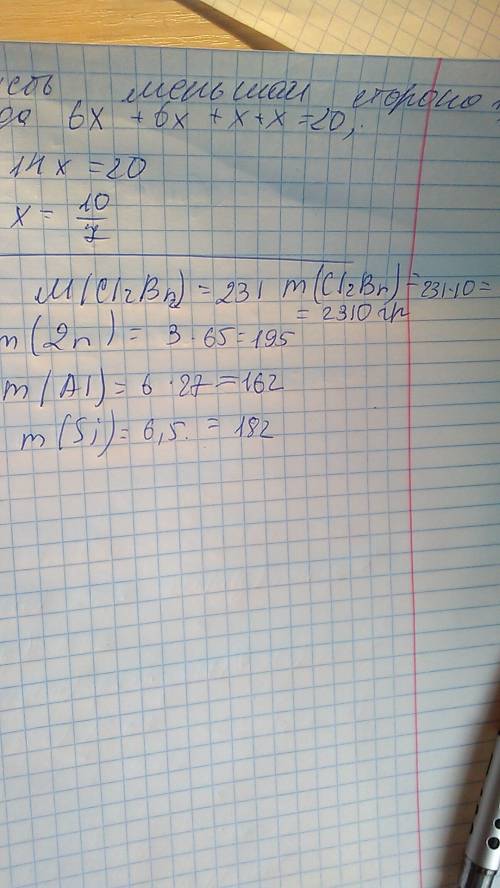 меньшая сторона
6x + 6x + x + x = 20,
14x = 20
x = 10/7
M(Cl₂Br₂) = 231 m(Cl₂Br₂) = 231·10 =
= 2310 гр
m(Zn) = 3·65 = 195
m(Al) = 6·27 = 162
m(Si) = 6,5. = 182